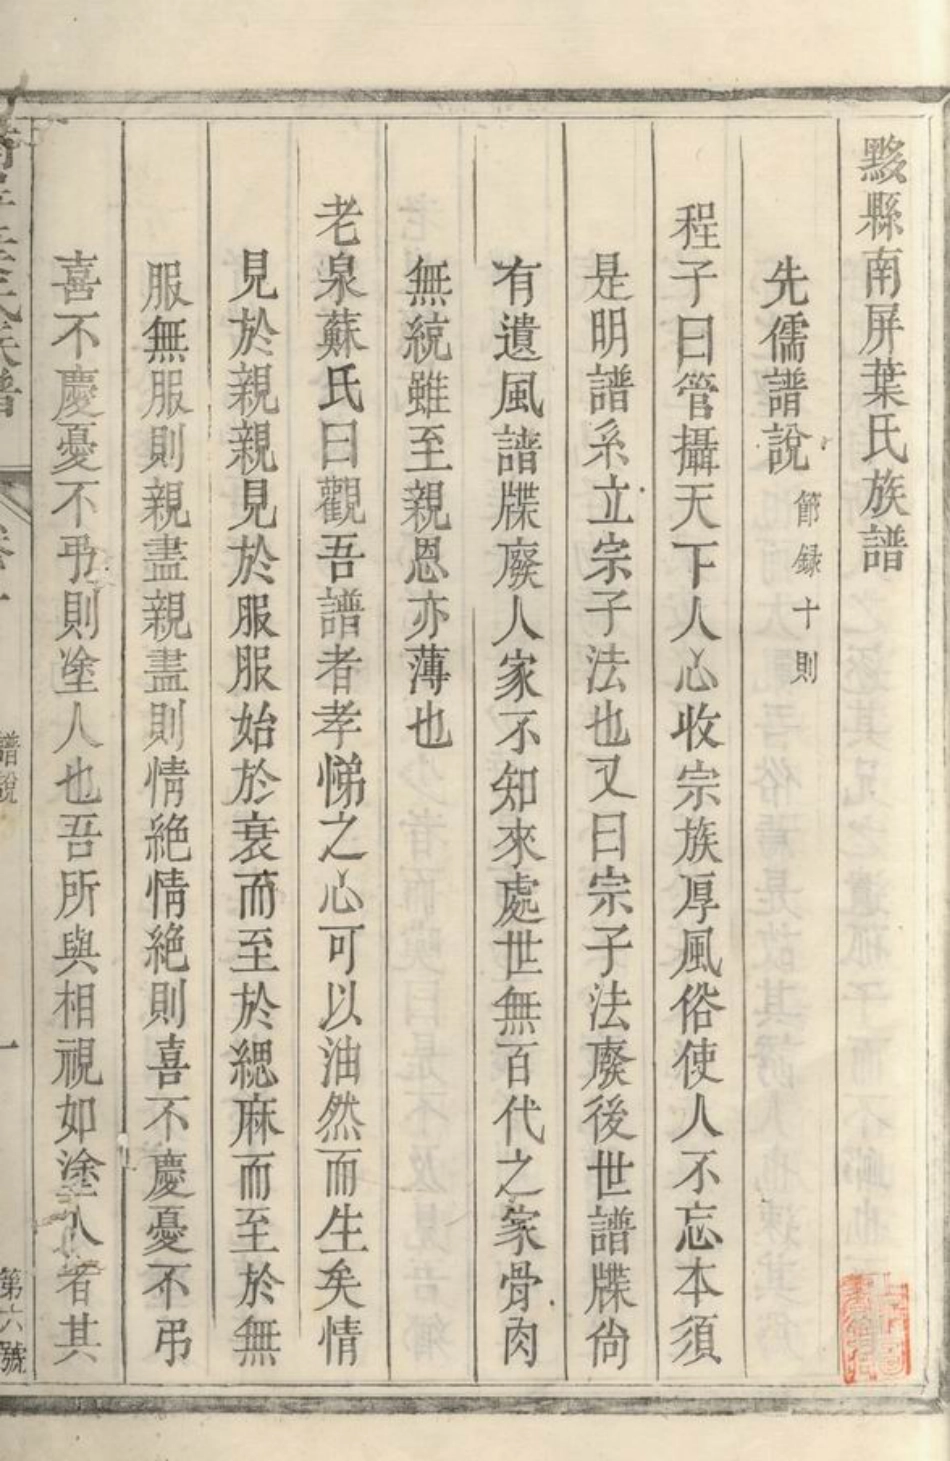 黟縣南屏葉氏族譜
先儒譜說 節録十則
程子曰管攝天下人心收宗族厚風俗使人不忘本須
是明譜系立宗子法也又曰宗子法廢後世譜牒尙
有遺風譜牒廢人家不知來處世無百代之家骨肉
無統雖至親恩亦薄也
老泉蘇氏曰觀吾譜者孝悌之心可以油然而生矣情
見於親親見於服服始於衰而至於緦麻而至於無
服無服則親盡親盡則情絶情絶則喜不慶憂不弔
喜不慶憂不弔則塗人也吾所與相視如塗人者其
譜說
一
第六號